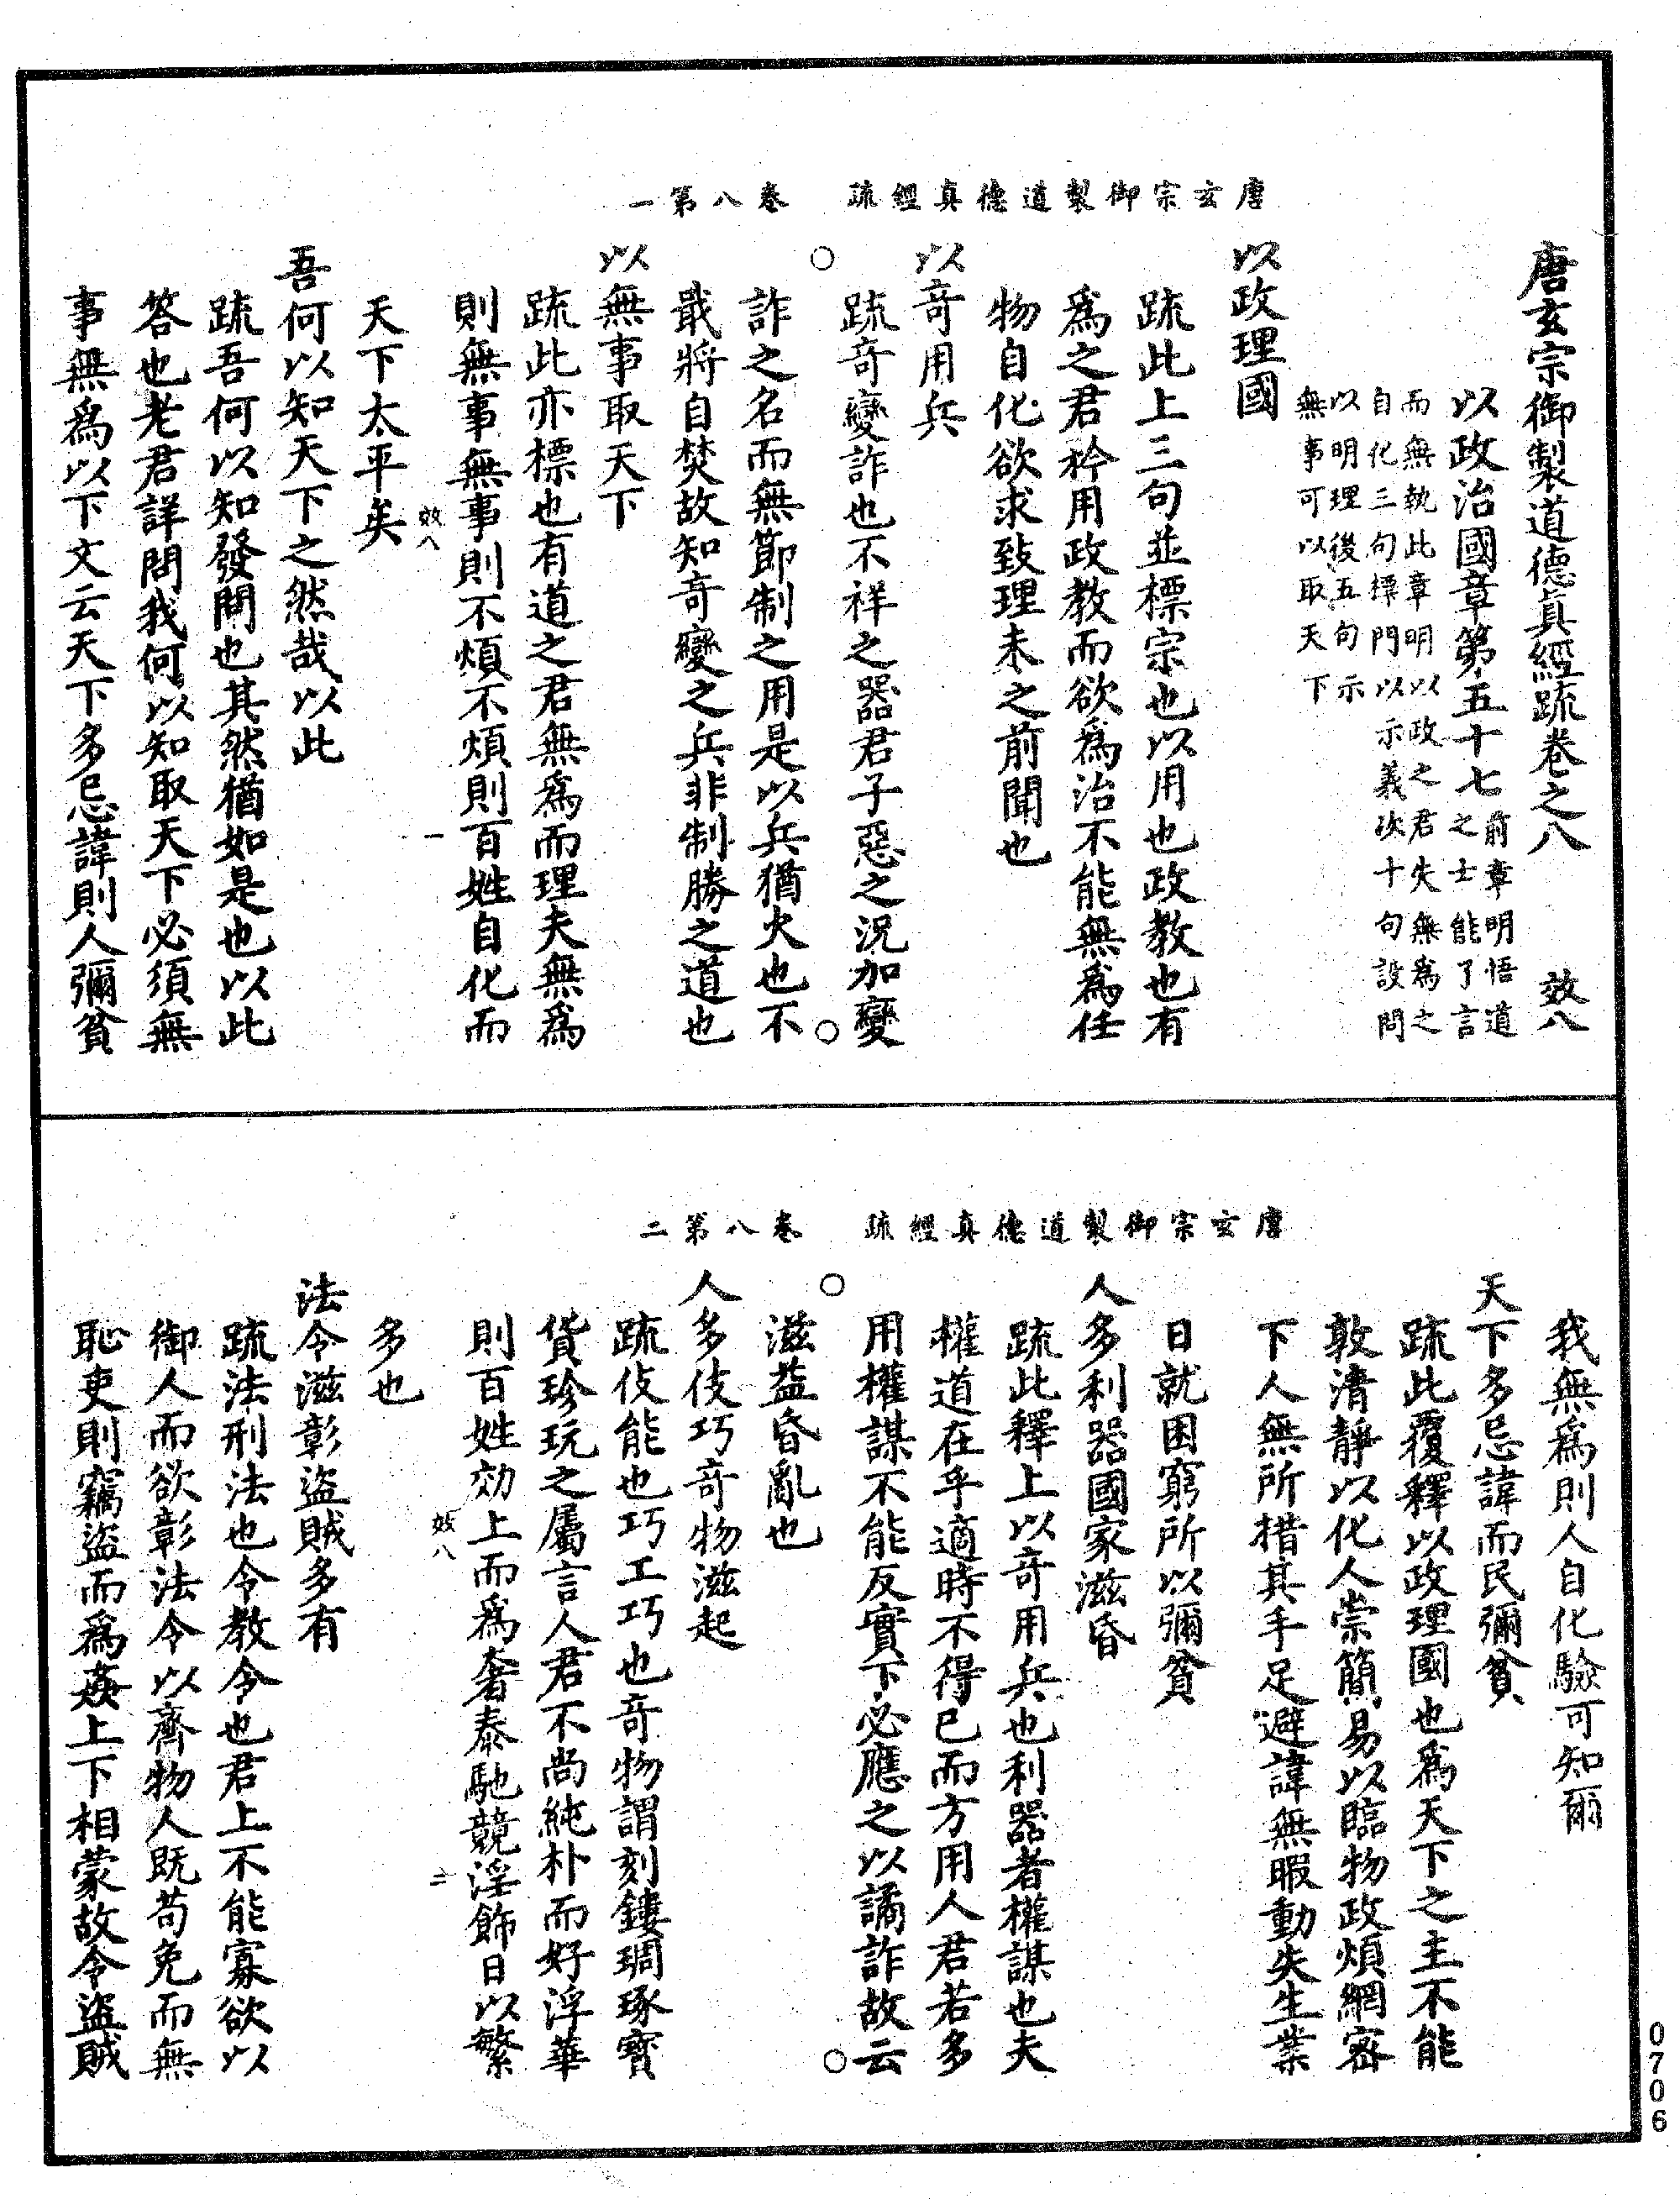 唐玄宗御製道德真經疏　卷八第一
唐玄宗御製道德真經疏卷之八　效八
以政治國章第五十七
前章明悟道
之士能了言
而無執此章明以政之君失無為之
自化三句標門以示義次十句設問
以明理後五句示
無事可以取天下
以政理國
疏此上三句並標宗也以用也政教也有
為之君矜用政教而欲為治不能無為任
物自化欲求致理未之前聞也
以奇用兵
疏奇變詐也不祥之器君子惡之況加變
詐之名而無節制之用是以兵猶火也不
戢將自焚故知奇變之兵非制勝之道也
以無事取天下
疏此亦標也有道之君無為而理夫無為
則無事無事則不煩不煩則百姓自化而
效八
一
天下太平矣
吾何以知天下之然哉以此
疏吾何以知發問也其然猶如是也以此
答也老君詳問我何以知取天下必須無
事無為以下文云天下多忌諱則人彌貧
唐玄宗御製道德真經疏　卷八第二
我無為則人自化驗可知爾
天下多忌諱而民彌貧
疏此覆釋以政理國也為天下之主不能
敦清靜以化人崇簡易以臨物政煩網密
下人無所措其手足避諱無暇動失生業
日就困窮所以彌貧
人多利器國家滋昏
疏此釋上以奇用兵也利器者權謀也夫
權道在乎適時不得已而方用人君若多
用權謀不能反實下必應之以譎詐故云
滋益昏亂也
人多伎巧奇物滋起
疏伎能也巧工巧也奇物謂刻鏤琱琢寶
貨珍玩之屬言人君不尚純朴而好浮華
則百姓効上而為奢泰馳競淫飾日以繁
效八
二
多也
法令滋彰盜賊多有
疏法刑法也令教令也君上不能寡欲以
御人而欲彰法令以齊物人既苟免而無
恥吏則竊盜而為姦上下相蒙故令盜賊
0706